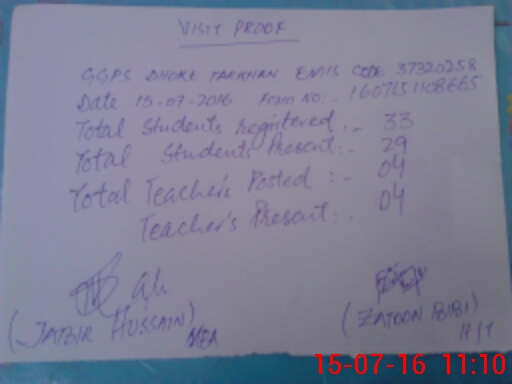 VISIT PROOF
GGPS DHOKE TARKHAN EMIS CODE 37320258
Date 15-07-2016 Form No:- 1607151108665
Total Students registered:- 33
Total Students Present:- 29
Total Teacher's Posted :- 04
Teacher's Present:- 04
(JATBIR HUSSAIN) MEA
(ZATOON BIBI)
H/T
15-07-16 11:10